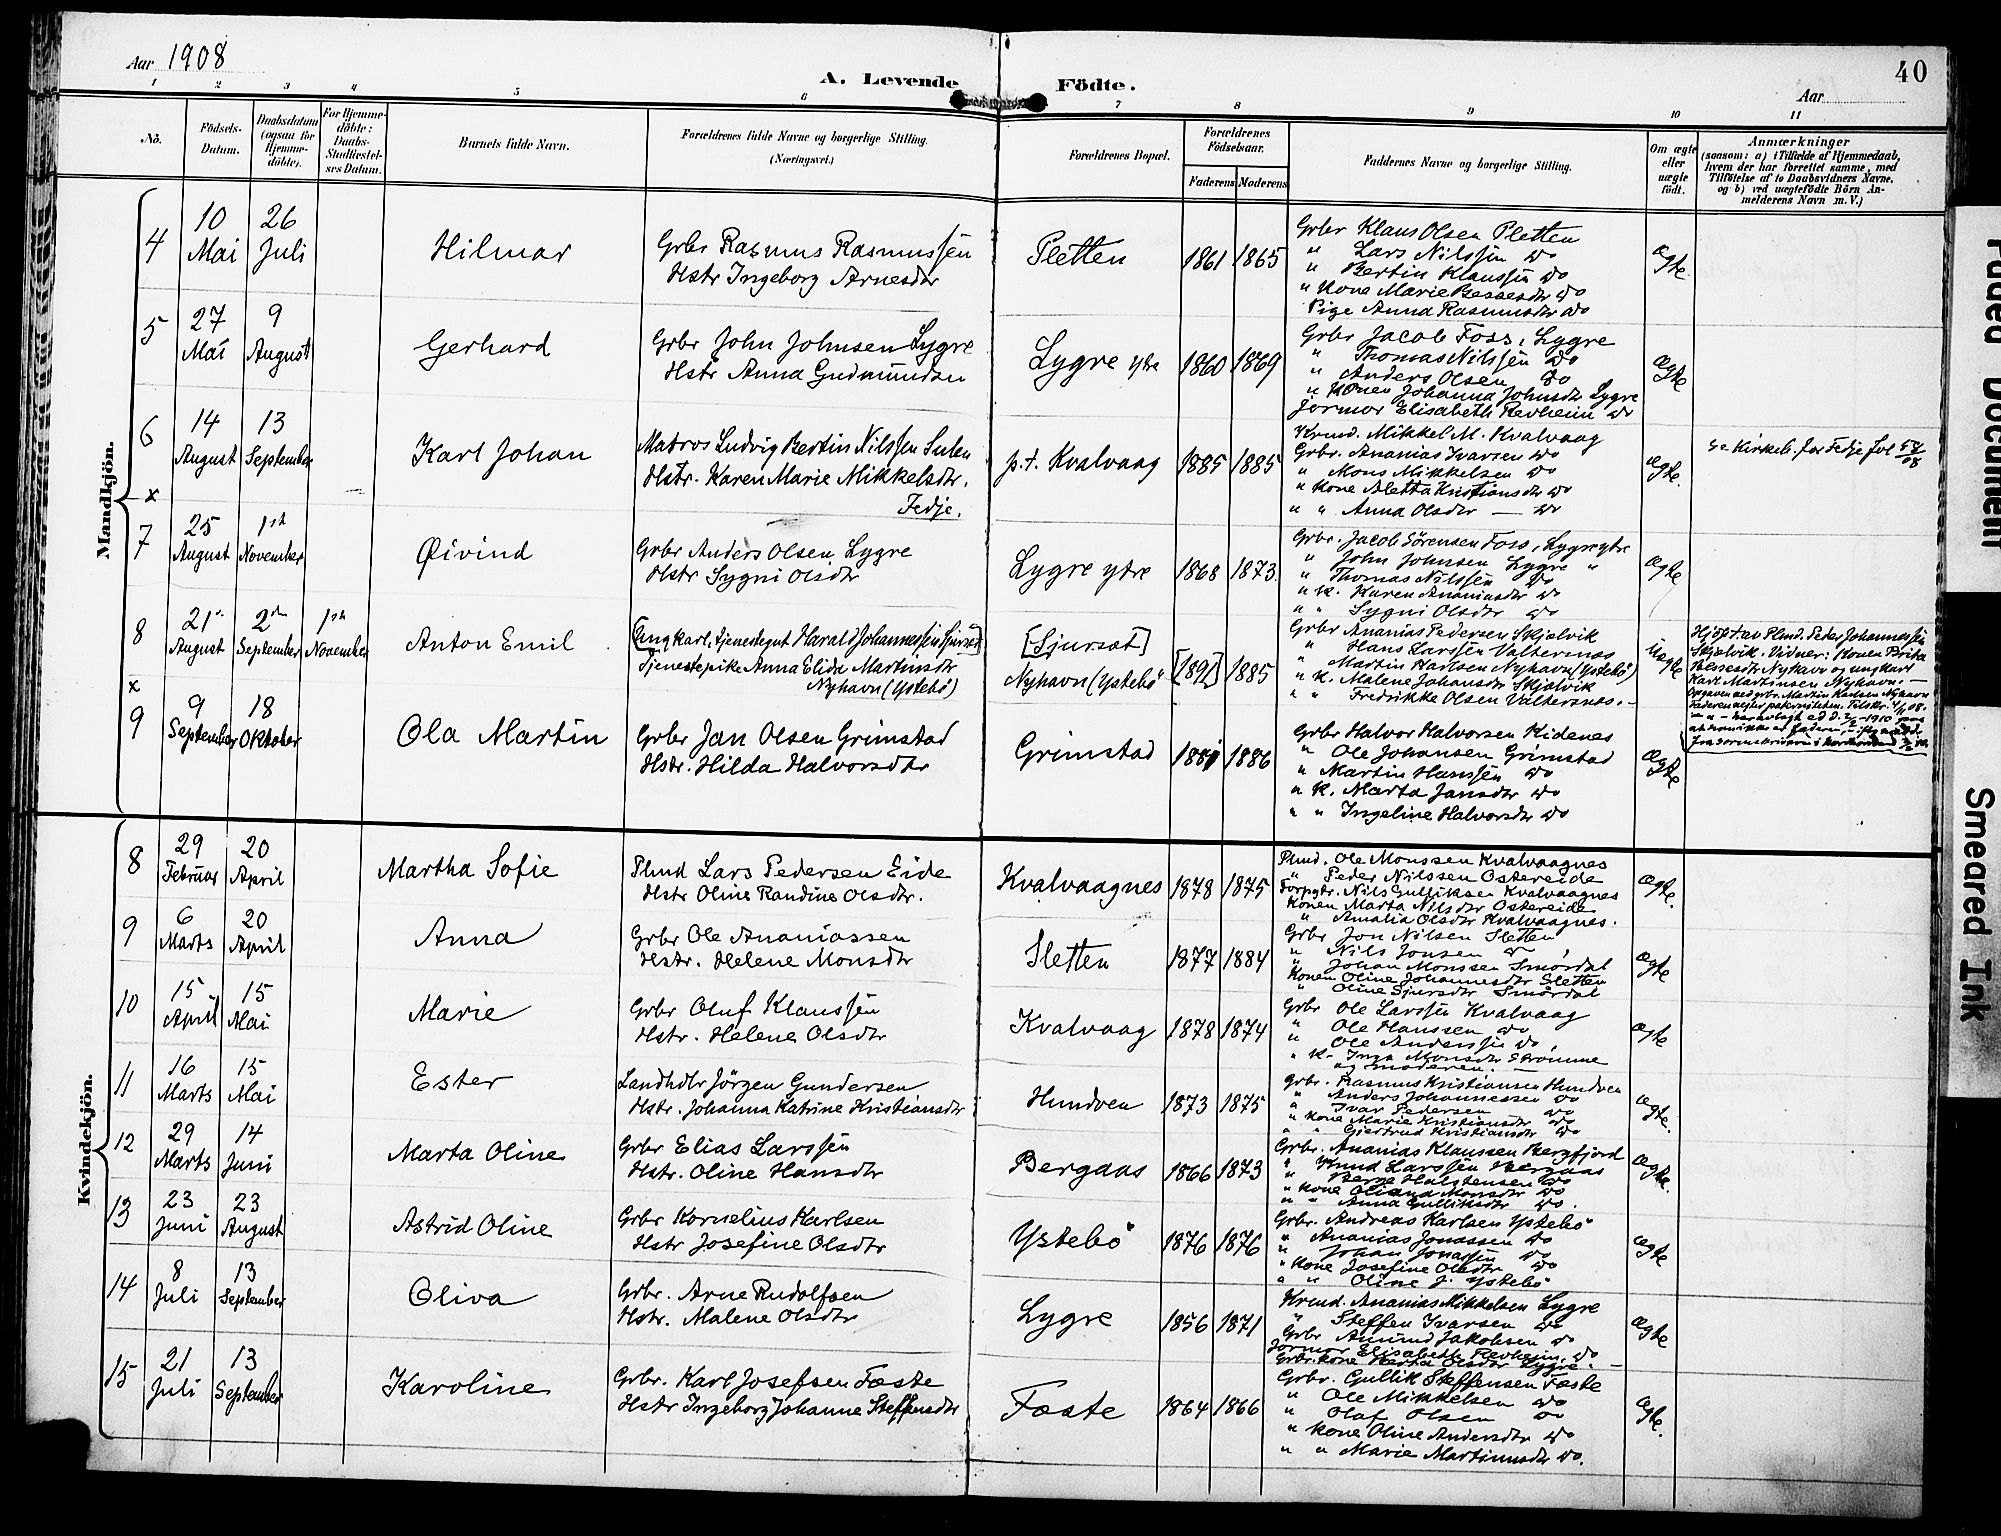 Aar 1908
A. Levende Födte.
40
Aar
1 2 3 4 5 6 7 8 9 10 11
No.
Födsels-Datum.
Daabsdatum (ogsaa for Hjemme-döbte).
For Hjemme-döbte: Daabs-Stadfæstel-ses Datum.
Barnets fulde Navn.
Forældrenes fulde Navne og borgerlige Stilling. (Næringsvei.)
Forældrenes Bopæl.
Forældrenes Födselsaar.
Faderens Moderens
Faddernes Navne og borgerlige Stilling.
Om ægte eller uægte født.
Anmærkninger
(saasom: a) i Tilfælde af Hjemmedaab, hvem der har forrettet samme, med Tilföielse af to Daabsvidners Navne. og b) ved uægtefödte Börn An-melderens Navn m.V.)
Mandkjön.
4
10 Mai
26 Juli
Hilmar
Grbr Rasmus Rasmussen
Hstr Ingeborg Arnesdtr
Sletten
1861 1865
Grbr Klaus Olsen Sletten
" Lars Nilssen do
" Bertin Klaussen do
" Kone Marie Bessesdtr do
Pige Anna Rasmusdtr do
ægte
5
27 Mai
9 August
Gerhard
Grbr John Johnsen Lygre
Hstr Anna Gudmundsen
Lygre ytre
1860 1869
Grbr Jacob Foss, Lygre
" Thomas Nilssen do
" Anders Olsen do
" Konen Johanna Johnsdtr Lygre
Jormor Elisabeth Revheim do
ægte
6
14 August
13 September
Karl Johan
Matros Ludvig Bertin Nilssen Sulen
Hstr. Karen Marie Mikkelsdtr.
Fedje.
p.t. Kvalvaag
1885 1885
Krmd. Mikkel M. Kvalvaag
Grbr. Ananias Ivarsen do
" Mons Mikkelsen do
" Kone Aletta Kristiansdtr do
" " Anna Olsdtr — do
ægte.
se Kirkeb. for Fedje
x
7
25 August
1ste November
Øivind
Grbr Anders Olsen Lygre
Hstr Sygni Olsdtr
Lygre ytre
1868 1873.
Grbr. Jacob Sörensen Foss, Lygre ytre
" John Johnsen Lygre "
" Thomas Nilssen do
" K. Karen Ananiasdtr do
" " Sygni Olsdtr do
ægte
8
21 August
2den September
1ste November
Anton Emil
[Ungkarl, tjenestegut Harald Johannessen Sjurset]
Tjenestepike Anna Elida Martinsdtr
Nyhavn (Ystebö)
[Sjursæt]
Nyhavn (Ystebö
[1891] 1885
Grbr Ananias Pedersen Skjelvik
" Hans Larssen Valtersnes
" Martin Karlsen Nyhavn (Ystebö)
" K. Malene Johansdtr Skjelvik
" " Fredrikke Olsen Valtersnes. -
uægte
Hjdöpt av Plmd. Peder Johannessen
Skjelvik. Vidner: Konen Brita
Bessesdtr Nyhavn og ungkarl
Karl Martinsen Nyhavn. —
x
9
9 September
18 Oktober
Ola Martin
Grbr Jan Olsen Grimstad
Hstr. Hilda Halvorsdtr
Grimstad
1881 1886
Grbr Halvor Halvorsen Kidenes
" Ole Johansen Grimstad
" Martin Hanssen do
" K. Marta Jansdtr do
" " Ingeline Halvorsdtr do
ægte
Kvindekjön.
8
29 Februar
20 April
Martha Sofie
Plmd Lars Pedersen Eide
Hstr Oline Randine Olsdtr.
Kvalvaagnes
1878 1875
Plmd. Ole Monssen Kvalvaagnes
" Peder Nilssen Ostereide
Forpgtr. Nils Gulliksen Kvalvaagnes
Konen Marta Nilsdtr Ostereide
" Amalia Olsdtr Kvalvaagnes.
ægte.
9
6 Marts
20 April
Anna
Grbr Ole Ananiassen
Hstr. Helene Monsdtr
Sletten
1877 1884
Grbr Jon Nilsen Sletten
" Nils Jonsen do
" Johan Monssen Smördal
Konen Oline Johannesdtr Sletten
" Oline Sjursdtr Smördal
ægte
10
15 April
15 Mai
Marie
Grbr Oluf Klaussen
Hstr. Helene Olsdtr
Kvalvaag
1878 1874
Grbr Ole Larssen Kvalvaag
" Ole Hanssen do
" Ole Anderssen do.
" K. Inga Monsdtr Strømme
og moderen. —
ægte
11
16 Marts
15 Mai
Ester
Landholr Jörgen Gundersen
Hstr. Johanna Katrine Kristiansdtr
Hundven
1873 1875
Grbr. Rasmus Kristiansen Hundven
" Anders Johannessen do
" Ivar Pedersen do
" Kone Marie Kristiansdtr do
" " Gjertrud Kristiansdtr do
ægte.
12
29 Marts
14 Juni
Marta Oline
Grbr Elias Larssen
Hstr. Oline Hansdtr
Bergaas
1866 1873
Grbr. Ananias Klaussen Bergfjord
" Knud Larssen Bergaas
" Berge Halstensen do
" Kone Oliana Monsdtr do
" " Anna Gulliksdtr do.
ægte.
13
23 Juni
23 August
Astrid Oline
Grbr Kornelius Karlsen
Hstr Josefine Olsdtr
Ystebö
1876 1876
Grbr. Andreas Karlsen Ystebö
" Ananias Jonassen do
" Johan Jonassen do
" Kone Josefine Olsdtr do
" " Oline J. Ystebö
ægte
14
8 Juli
13 September
Oliva
Grbr. Arne Rudolfsen
Hstr. Malene Olsdtr
Lygre
1856 1871
Krmd. Ananias Mikkelsen Lygre
" Steffen Ivarsen do
Grbr Amund Jakobsen do
Jormor Elisabeth Revheim. do
Grbr. kone Berta Olsdtr Lygre. —
ægte
15
21 Juli
13 September
Karoline
Grbr. Karl Josefsen Fæste
Hstr Ingeborg Johanne Steffensdtr
Fæste
1864 1866
Grbr. Gullik Steffensen Fæste
" Ole Mikkelsen do
" Olaf Olsen do
" Kone Oline Andersdtr do
" " Marie Martinusdtr do.
ægte.
Faded Document
Smeared Ink